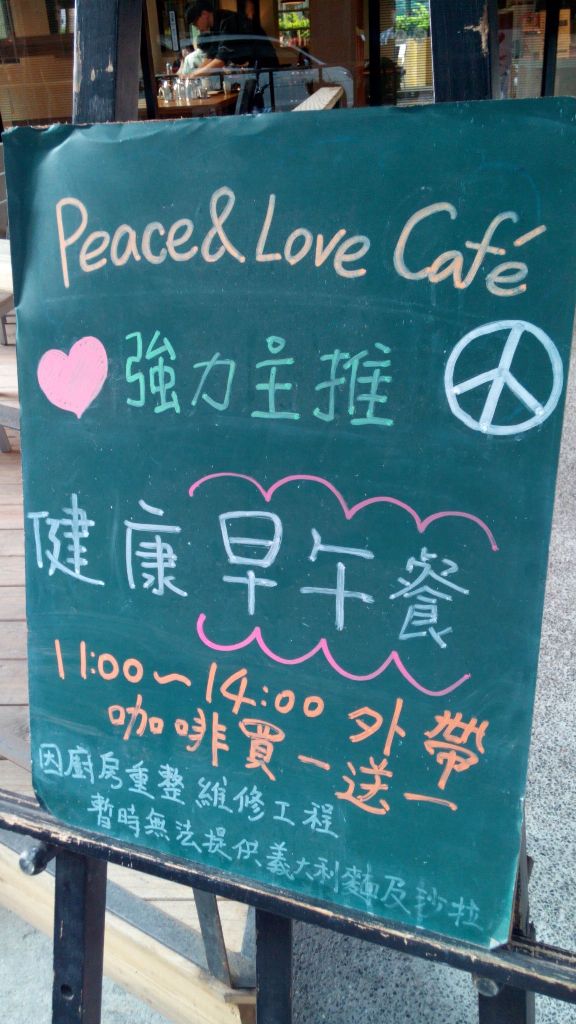 Peace & Love Café
強力主推
健康早午餐
11:00～14:00 外帶
咖啡買一送一
因廚房重整維修工程
暫時無法提供義大利麵及沙拉